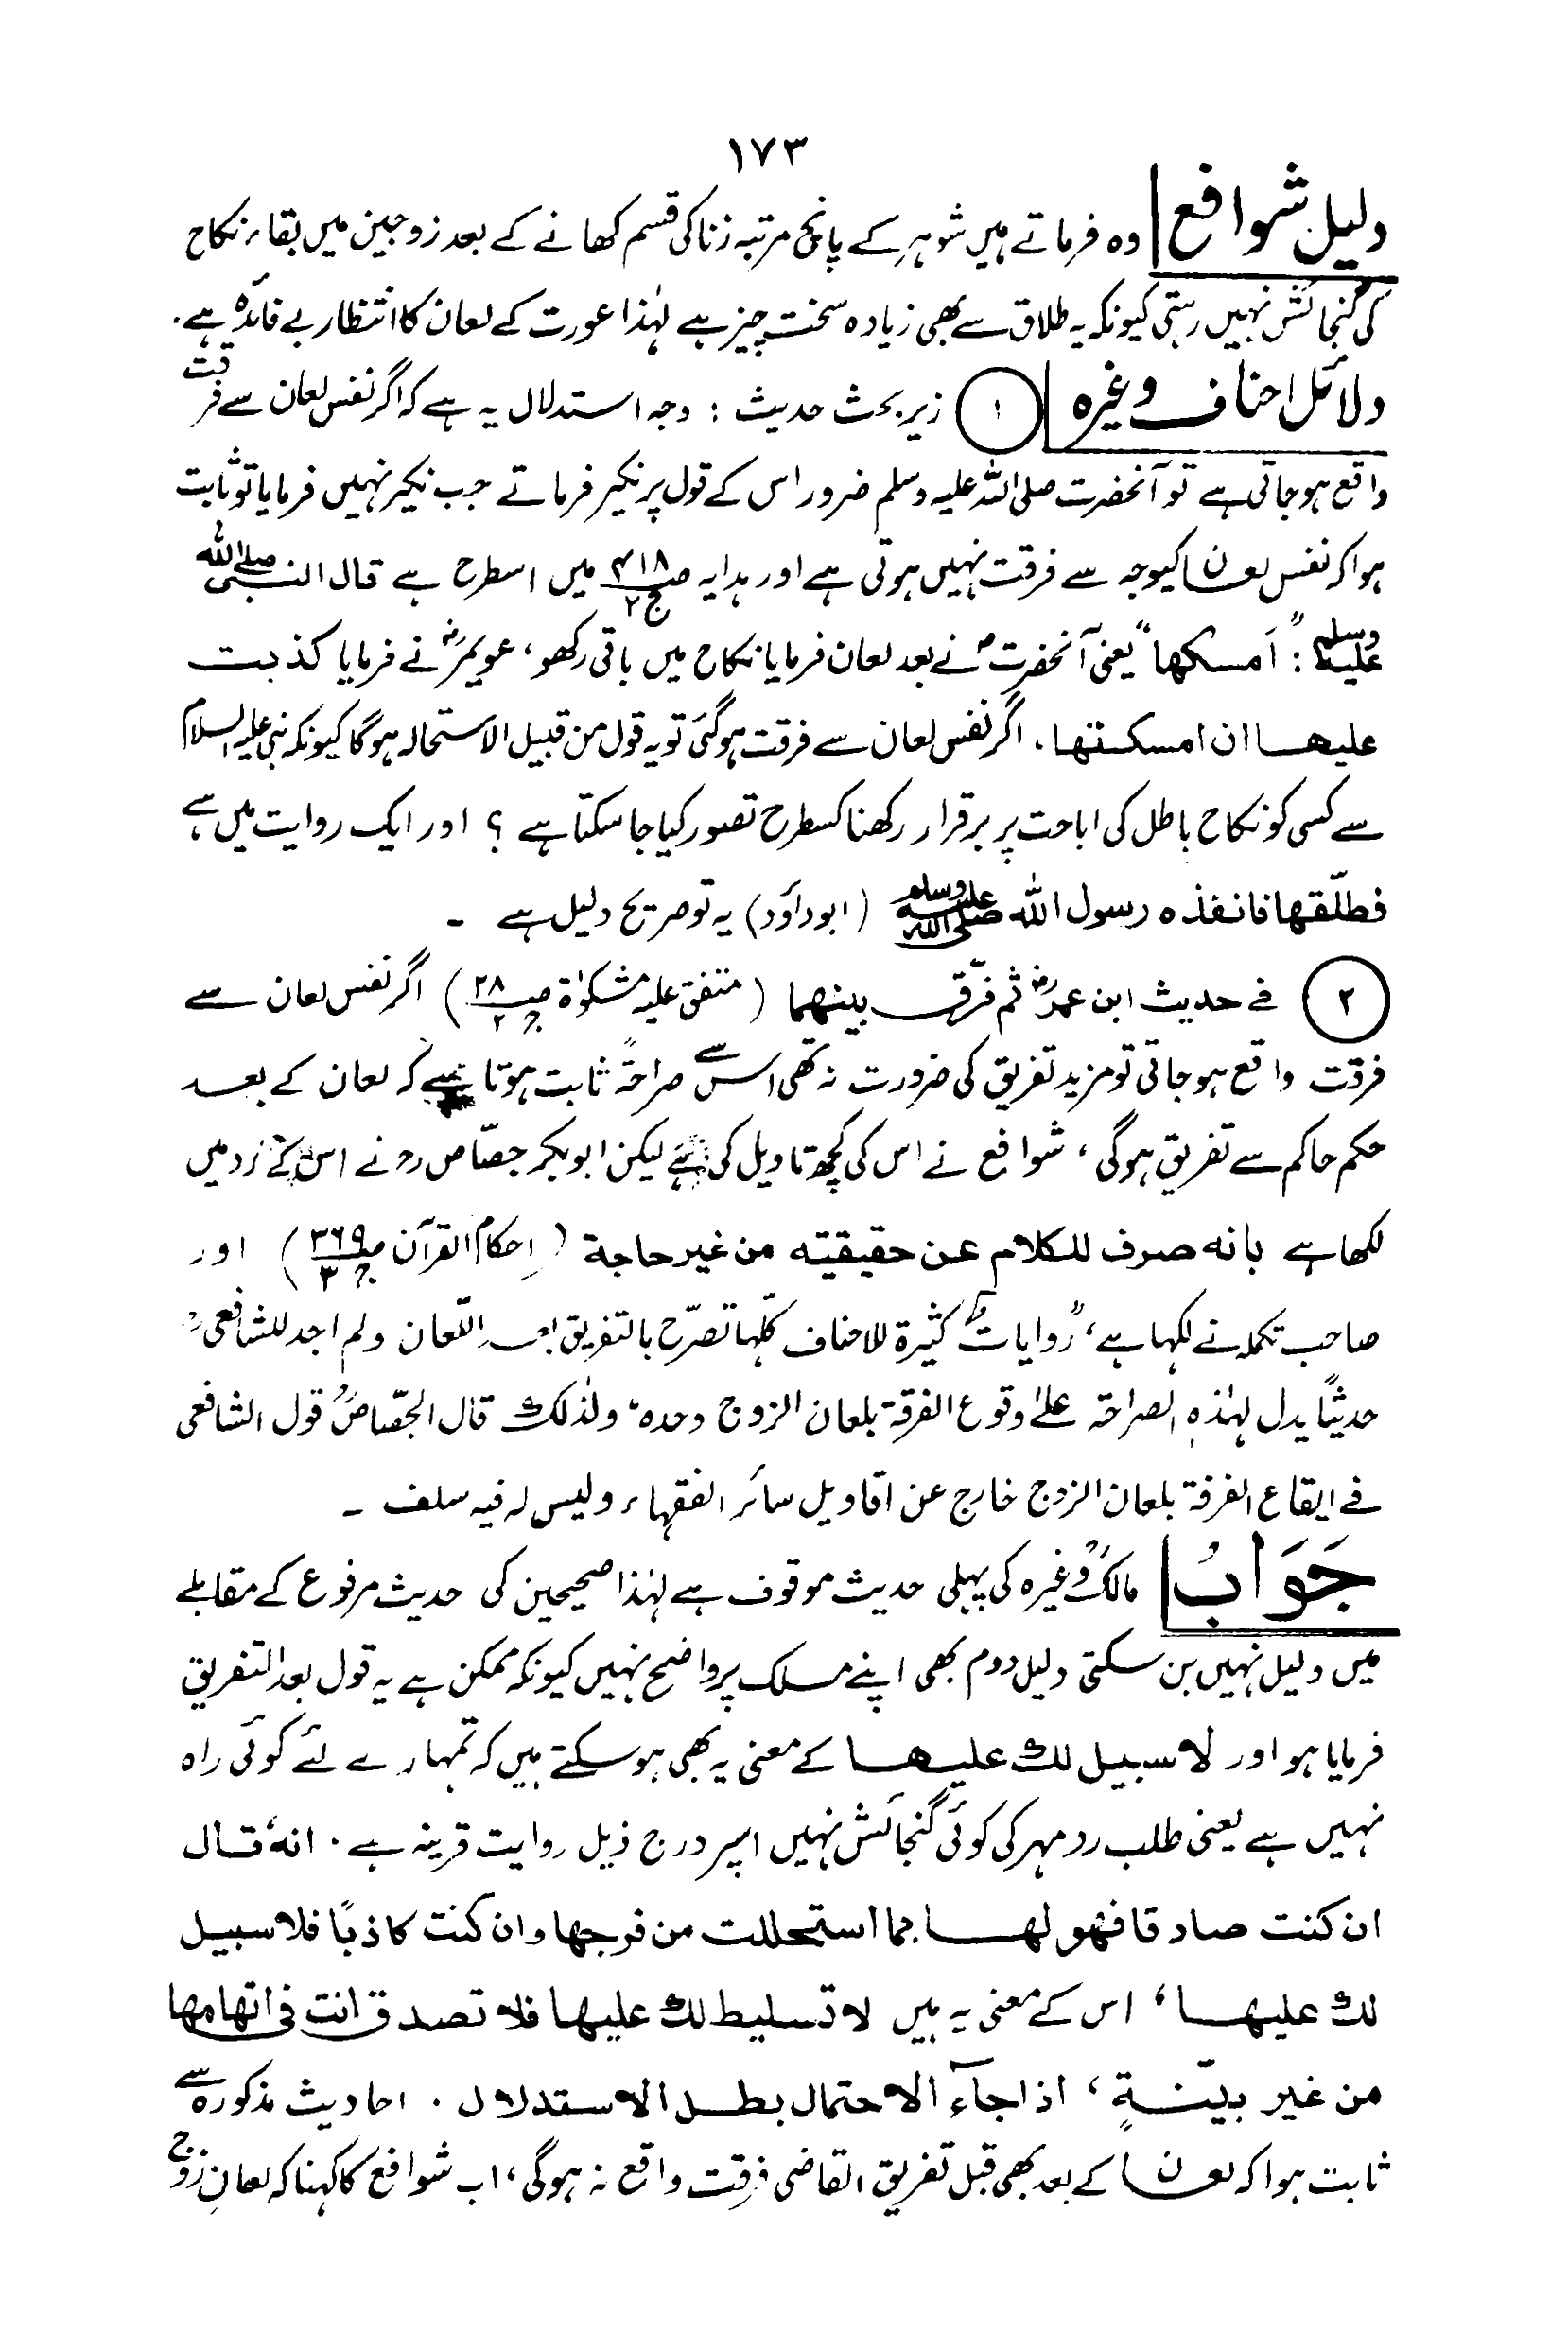 ۱۷۳
دلیل شوافع | وہ فرماتے ہیں شوہر کے پانچ مرتبہ زنا کی قسم کھانے کے بعد زوجین میں بقاء نکاح
کی گنجائش نہیں رہتی کیونکہ یہ طلاق سے بھی زیادہ سخت چیز ہے لہٰذا عورت کے لعان کا انتظار بے فائدہ ہے۔
دلائل احناف وغیرہ | ۱ زیر بحث حدیث : وجہ استدلال یہ ہے کہ اگر نفس لعان سے فرقت
واقع ہو جاتی ہے تو آنحضرت صلی اللہ علیہ وسلم ضرور اس کے قول پر نکیر فرماتے جب نکیر نہیں فرمایا تو ثابت
ہوا کہ نفس لعان کیوجہ سے فرقت نہیں ہوتی ہے اور ہدایہ ص۴۱۸ ج۲ میں اسطرح ہے قال النبی صلی اللہ
علیہ وسلم : "اَمسکھا" یعنی آنحضرتؐ نے بعد لعان فرمایا نکاح میں باقی رکھو، عویمرؓ نے فرمایا کذبت
علیھا ان امسکتھا۔ اگر نفس لعان سے فرقت ہو گئی تو یہ قول من قبیل الاستحالہ ہوگا کیونکہ نبی علیہ السلام
سے کسی کو نکاح باطل کی اباحت پر برقرار رکھنا کسطرح تصور کیا جا سکتا ہے ؟ اور ایک روایت میں ہے
فطلّقھا فانفذہ رسول اللہ صلی اللہ علیہ وسلم (ابوداؤد) یہ تو صریح دلیل ہے ۔
۲ فی حدیث ابن عمرؓ ثم فرّق بینھما (متفق علیہ مشکوٰۃ ص۲۸ ج۲) اگر نفس لعان سے
فرقت واقع ہو جاتی تو مزید تفریق کی ضرورت نہ تھی اس سے صراحۃً ثابت ہوتا ہے کہ لعان کے بعد
حکم حاکم سے تفریق ہوگی، شوافع نے اس کی کچھ تاویل کی ہے لیکن ابوبکر جصّاص رح نے اس کے رد میں
لکھا ہے بانہ صرف للکلام عن حقیقتہ من غیر حاجة (احکام القرآن ص۳۶۹ ج۳) اور
صاحب تکملہ نے لکھا ہے، "روایاتٌ کثیرة للاحناف کلّھا تصرّح بالتفریق بعد اللّعان ولم اجد للشافعیؒ
حدیثًا یدل لہٰذہ الصراحۃ علیٰ وقوع الفرقة بلعان الزوج وحدہ" ولذلک قال الجصّاصؒ قول الشافعی
فی ایقاع الفرقة بلعان الزوج خارج عن اقاویل سائر الفقہاء ولیس لہ فیہ سلف ۔
جَوَابُ | مالکؒ وغیرہ کی پہلی حدیث موقوف ہے لہٰذا صحیحین کی حدیث مرفوع کے مقابلے
میں دلیل نہیں بن سکتی دلیل دوم بھی اپنے مسلک پر واضح نہیں کیونکہ ممکن ہے یہ قول بعد التفریق
فرمایا ہو اور لا سبیل لک علیھا کے معنی یہ بھی ہو سکتے ہیں کہ تمہارے لئے کوئی راہ
نہیں ہے یعنی طلب رد مہر کی کوئی گنجائش نہیں اسپر درج ذیل روایت قرینہ ہے ۔ انہٗ قال
ان کنت صادقا فھو لھا بما استحللت من فرجھا وان کنت کاذبًا فلا سبیل
لک علیھا، اس کے معنی یہ ہیں لا تسلیط لک علیھا فلا تصدق انت فی اتھامھا
من غیر بیّنةٍ، اذا جاء الاحتمال بطل الاستدلال ۔ احادیث مذکورہ سے
ثابت ہوا کہ لعان کے بعد بھی قبل تفریق القاضی فرقت واقع نہ ہوگی، اب شوافع کا کہنا کہ لعانِ زوج